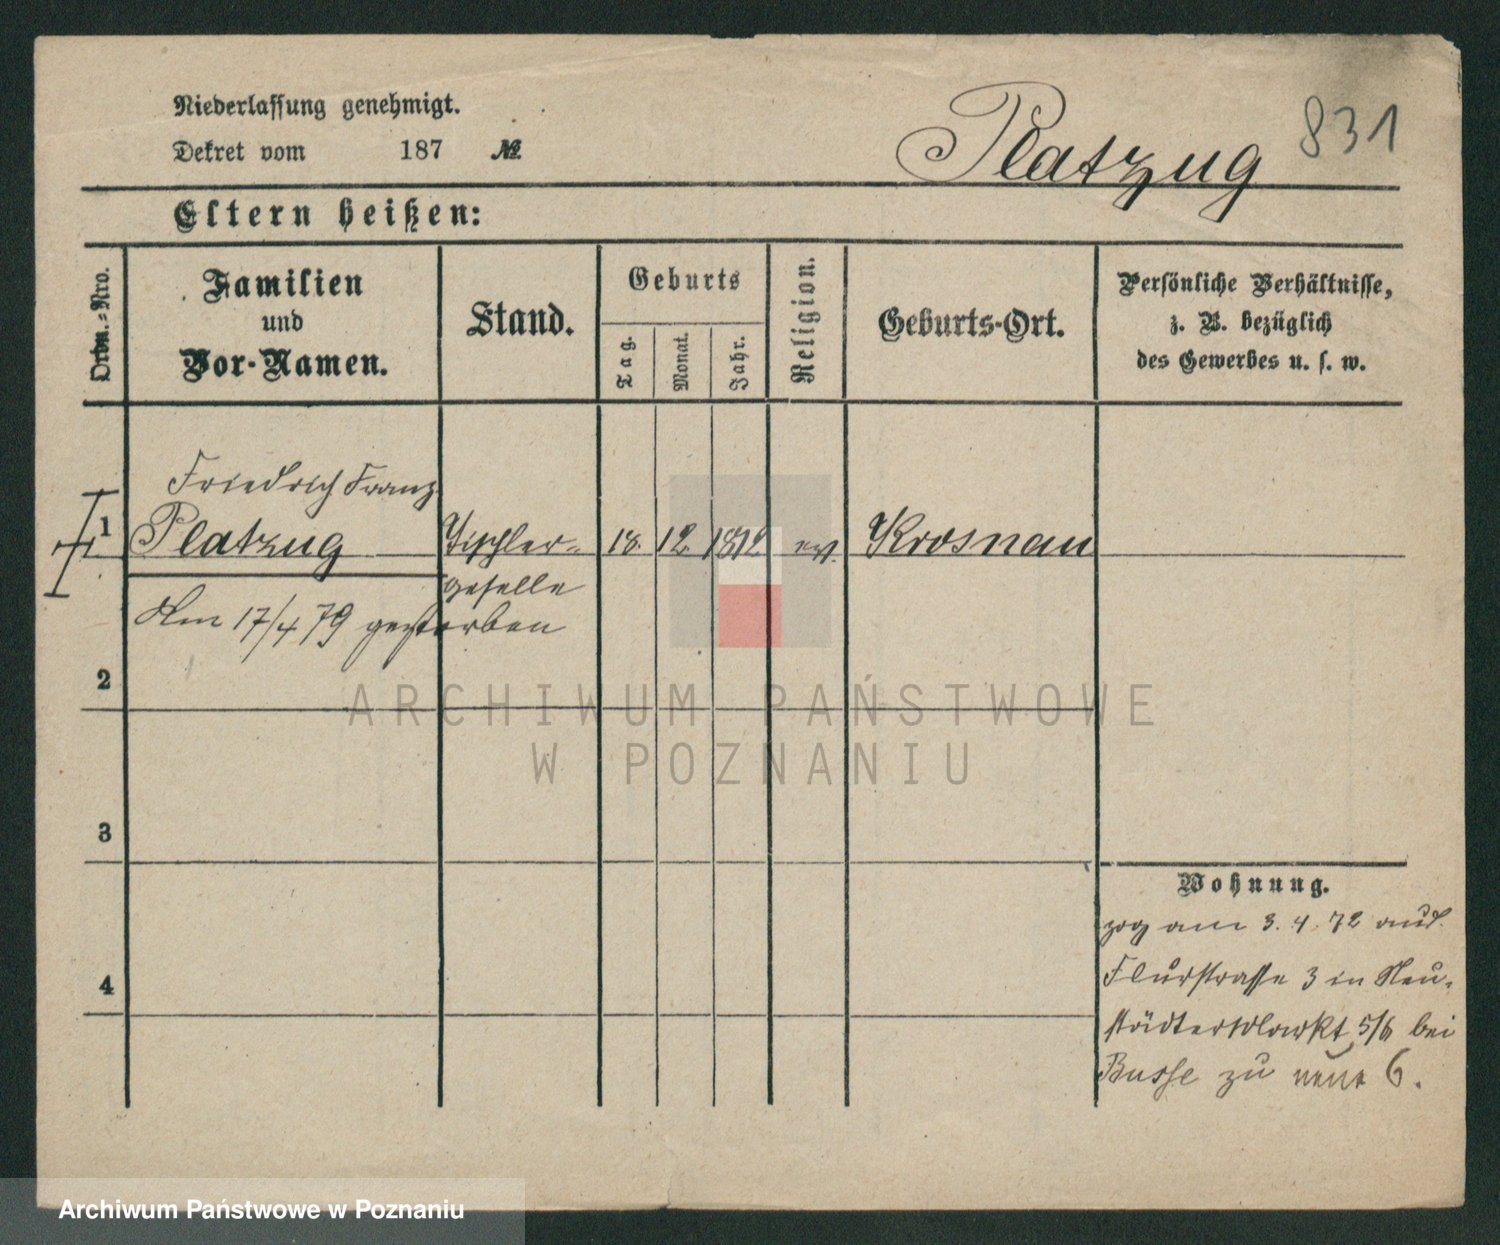 Niederlassung genehmigt.
Dekret vom 187 №
Platzug 831
Eltern heißen:
Ordn.-Nro.
Familien
und
Vor-Namen.
Stand.
Geburts
Tag.
Monat.
Jahr.
Religion.
Geburts-Ort.
Persönliche Verhältnisse,
z. B. bezüglich
des Gewerbes u. s. w.
Friedrich Franz
1 Platzug Tischler- 18. 12. 1812 ev. Krosnau
geselle
Am 17/4 79 gestorben
2
3
4
Wohnung.
zog am 3. 4. 72 aus
Flurstrasse 3 in Neu-
städtermarkt 5/6 bei
Busse zu 6.
ARCHIWUM PAŃSTWOWE
W POZNANIU
Archiwum Państwowe w Poznaniu